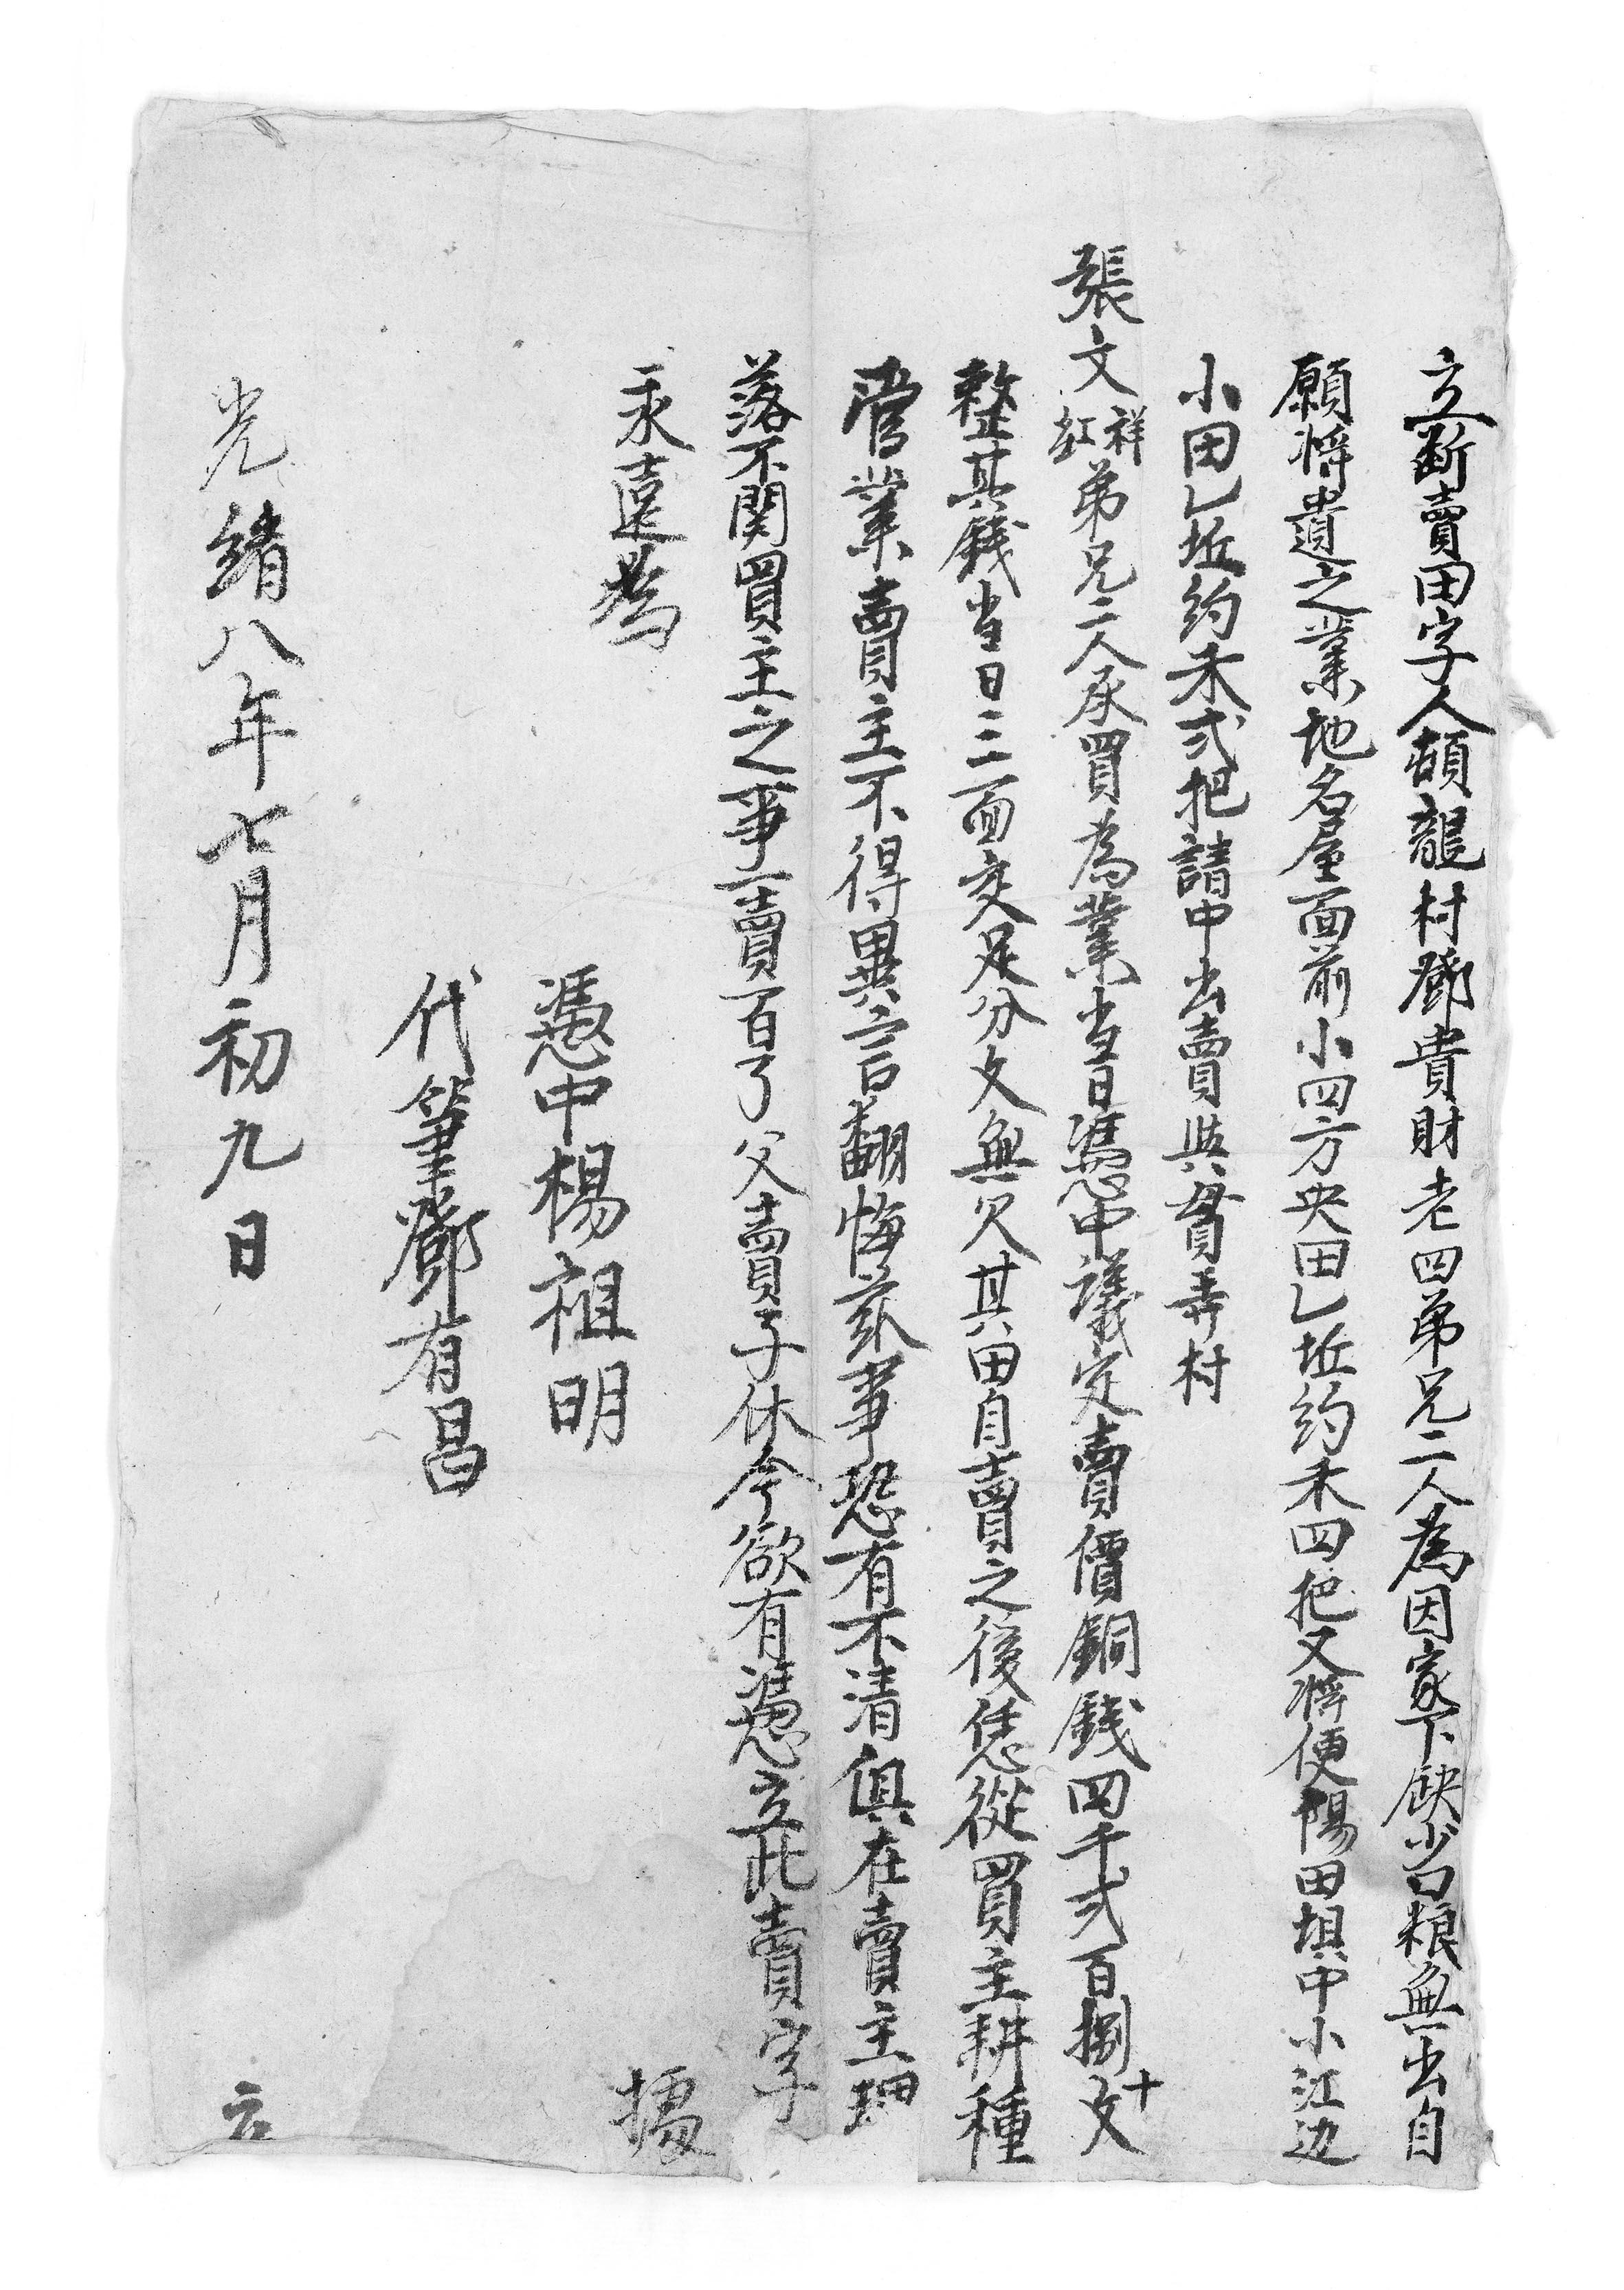 立斷賣田字人頡龍村鄧貴財老四弟兄二人為因家下缺少口粮無出自
願將遺之業地名屋面前小四方央田乚坵約禾四把又將便陽田垻中小江边
小田乚坵約禾弍把請中出賣與貫寿村
張文祥紅弟兄二人承買為業当日憑中議定賣價銅錢四千弍百捌十文
整其錢当日三面交足分文無欠其田自賣之後恁從買主耕種
管業賣主不得異言翻悔兹事恐有不清俱在賣主理
落不関買主之事一賣百了父賣子休今欲有憑立此賣字
永遠為 㨿
憑中楊祖明
代筆鄧有昌
光緒八年七月初九日 立